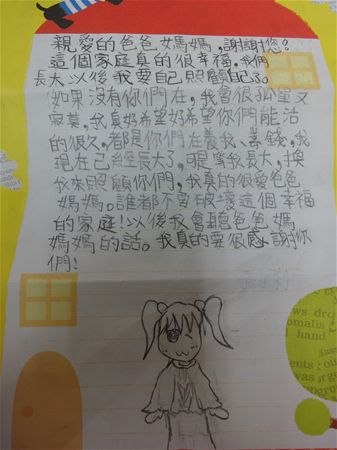 親愛的爸爸媽媽,謝謝您!
這個家庭真的很幸福。我們
長大以後我要自己照顧自己了。
如果沒有你們在,我會很孤單又
寂寞,我真好希望好希望你們能活
的很久,都是你們在養我、賺錢,我
現在已經長大了,眼看我長大,換
我來照顧你們,我真的很愛爸爸
媽媽。誰都不容破壞這個幸福
的家庭!以後我會聽爸爸媽
媽媽的話。我真的要很感謝你
們!